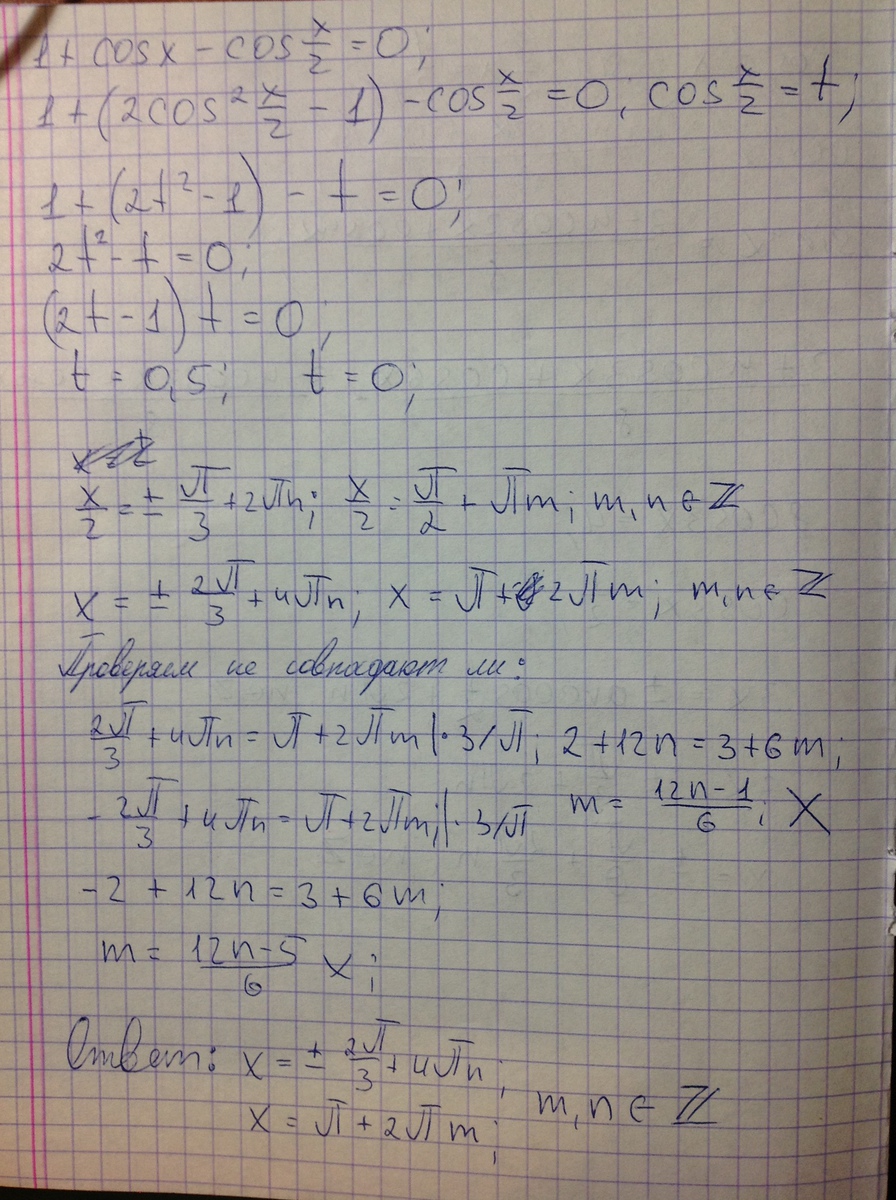 1 + cos x - cos x/2 = 0;
1 + (2cos² x/2 - 1) - cos x/2 = 0; cos x/2 = t;
1 + (2t² - 1) - t = 0;
2t² - t = 0;
(2t - 1) t = 0;
t = 0,5; t = 0;
x/2 = ± π/3 + 2πn; x/2 = π/2 + πm; m, n ∈ ℤ
x = ± 2π/3 + 4πn; x = π + 2πm; m, n ∈ ℤ
Проверяем не совпадают ли:
2π/3 + 4πn = π + 2πm |· 3/π; 2 + 12n = 3 + 6m;
- 2π/3 + 4πn = π + 2πm; |· 3/π m = (12n - 1)/6; X
-2 + 12n = 3 + 6m;
m = (12n - 5)/6 X;
Ответ: x = ± 2π/3 + 4πn;
x = π + 2πm; m, n ∈ ℤ